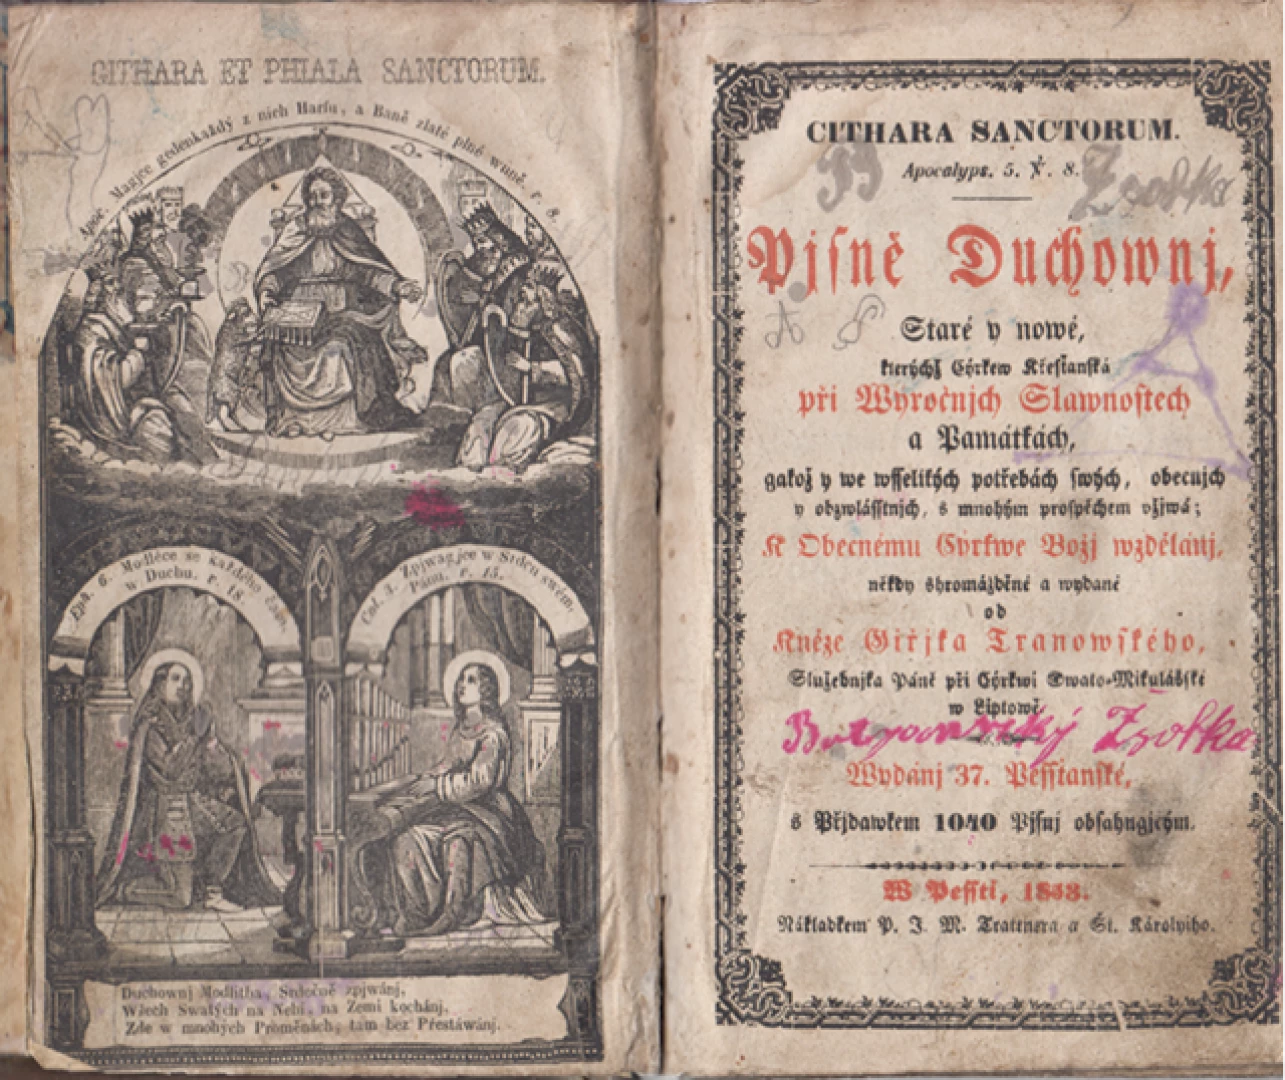 CITHARA ET PHIALA SANCTORUM.
Apoc. Magjce gedenkaždý z nich Harfu, a Baně zlaté plné wůně. r. 8.
Eph. 6. Modléce se každého času,
w Duchu. r. 18.
Col. 3. Zpjwagjce w Srdcy swém,
Pánu. r. 15.
Duchownj Modlitba, Srdečné zpjwánj,
Wšech Swatých na Nebi, na Zemi kochánj.
Zde w mnohých Proměnách, tam bez Přestáwánj.
CITHARA SANCTORUM.
Apocalyps. 5. v. 8.
Zsolka
Pjsně Duchownj,
Staré y nowé,
kterýchž Cýrkew Křesťanská
při Weyročnjch Slawnostech
a Památkách,
gakož y we wsselikých potřebách swých, obecnjch
y obzwlásstnjch, s mnohým prospěchem vžjwá;
K Obecnému Cýrkwe Božj wzdělánj,
někdy shromážděné a wydané
od
Kněze Giřjka Tranowského,
Služebnjka Páně při Cýrkwi Swato-Mikulášské
w Liptowě.
Zsolka
Wydánj 37. Pesstanské,
s Přjdawkem 1040 Pjsnj obsahugjcým.
W Pessti,
Nákladkem P. J. M. Trattnera a Št. Károlyiho.